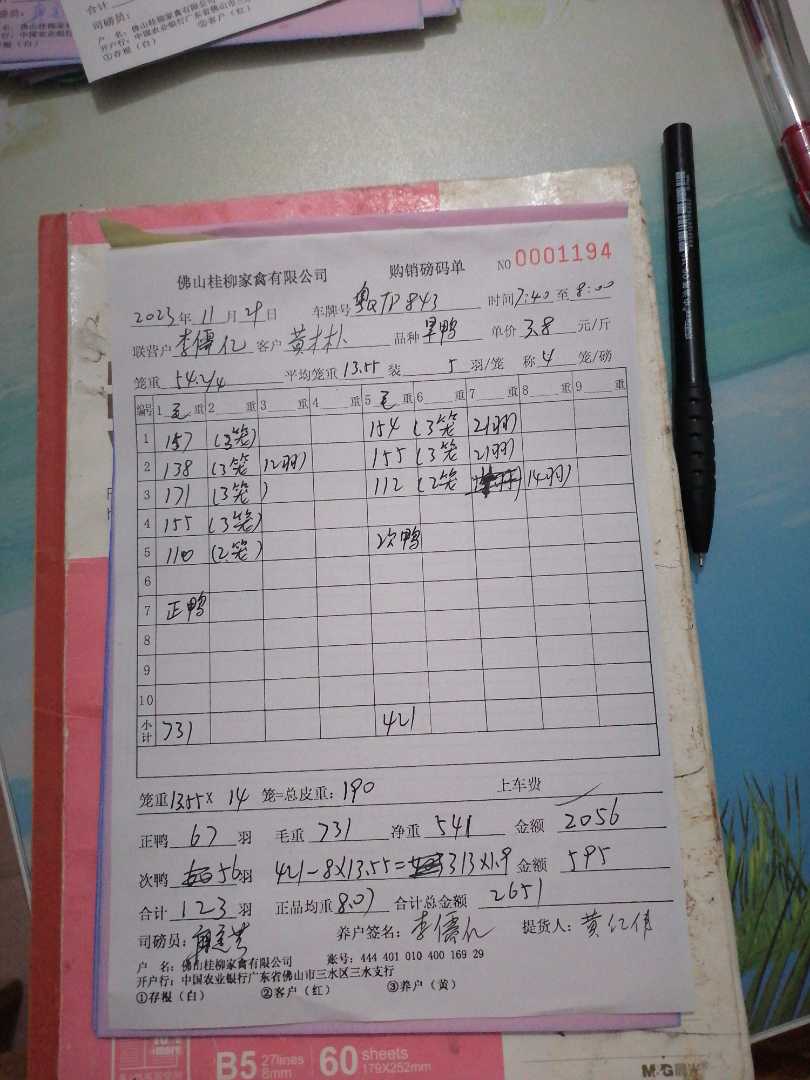 合计
司磅员:
户 名: 佛山桂柳家禽有限公司
开户行: 中国农业银行广东省佛山市三
①存根(白) ②客户(红)
佛山桂柳家禽有限公司 购销磅码单 NO 0001194
2023年11月29日 车牌号 粤QTP843 时间7:40至8:00
联营户 李儒亿 客户 品种 旱鸭 单价 3.8 元/斤
笼重 54.2/4 平均笼重 13.55 装 5 羽/笼 称 4 笼/磅
编号 1 毛 重 2 重 3 重 4 重 5 毛 重 6 重 7 重 8 重 9 重
1 157 (3笼) 154 (3笼 21羽)
2 138 (3笼 12羽) 155 (3笼 21羽)
3 171 (3笼) 112 (2笼 14羽)
4 155 (3笼)
5 110 (2笼) 次鸭
6
7 正鸭
8
9
10
小计 731 421
笼重 13.55× 14 笼=总皮重: 190 上车费
正鸭 67 羽 毛重 731 净重 541 金额 2056
次鸭 56羽 421-8×13.55= 313×1.9 金额 595
合计 123 羽 正品均重 8.07 合计总金额 2651
司磅员: 养户签名: 李儒亿 提货人: 黄仁伟
户 名: 佛山桂柳家禽有限公司 账号: 444 401 010 400 169 29
开户行: 中国农业银行广东省佛山市三水区三水支行
①存根(白) ②客户(红) ③养户(黄)
B5 27lines 8mm 60 sheets 179X252mm M&G晨光